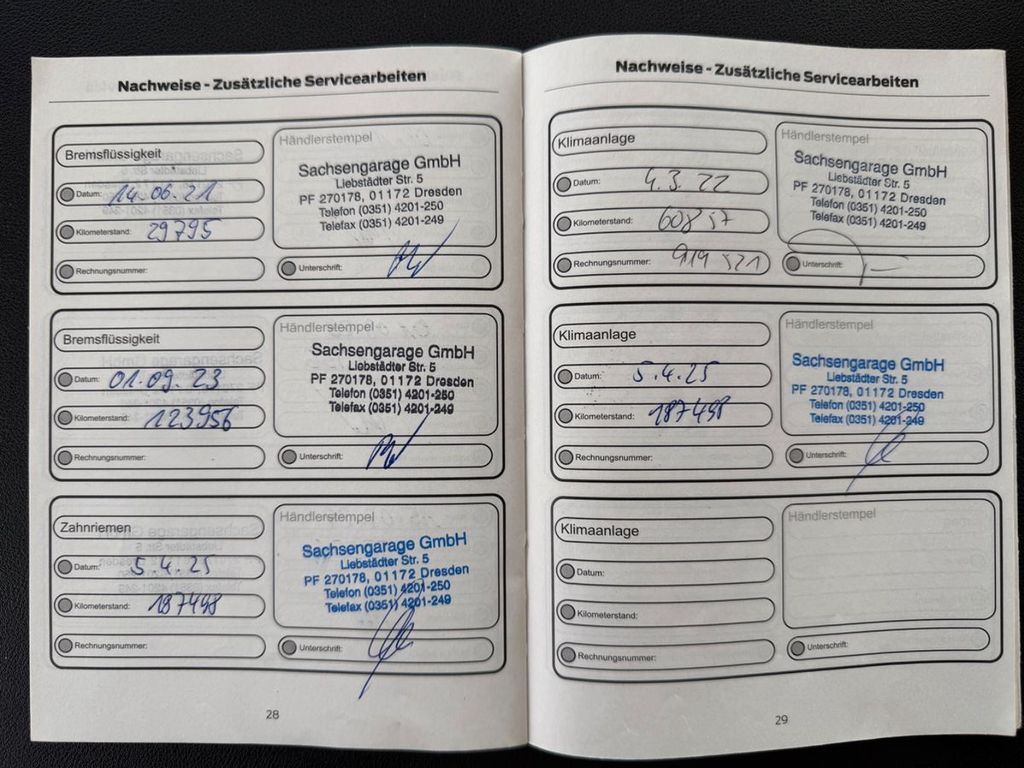 Nachweise - Zusätzliche Servicearbeiten
Bremsflüssigkeit
Datum: 14.06.21
Kilometerstand: 29795
Rechnungsnummer:
Händlerstempel
Sachsengarage GmbH
Liebstädter Str. 5
PF 270178, 01172 Dresden
Telefon (0351) 4201-250
Telefax (0351) 4201-249
Unterschrift:
Bremsflüssigkeit
Datum: 01.09.23
Kilometerstand: 123956
Rechnungsnummer:
Händlerstempel
Sachsengarage GmbH
Liebstädter Str. 5
PF 270178, 01172 Dresden
Telefon (0351) 4201-250
Telefax (0351) 4201-249
Unterschrift:
Zahnriemen
Datum: 5.4.25
Kilometerstand: 187498
Rechnungsnummer:
Händlerstempel
Sachsengarage GmbH
Liebstädter Str. 5
PF 270178, 01172 Dresden
Telefon (0351) 4201-250
Telefax (0351) 4201-249
Unterschrift:
28
Nachweise - Zusätzliche Servicearbeiten
Klimaanlage
Datum: 4.3.22
Kilometerstand: 60857
Rechnungsnummer: 919521
Händlerstempel
Sachsengarage GmbH
Liebstädter Str. 5
PF 270178, 01172 Dresden
Telefon (0351) 4201-250
Telefax (0351) 4201-249
Unterschrift:
Klimaanlage
Datum: 5.4.25
Kilometerstand: 187498
Rechnungsnummer:
Händlerstempel
Sachsengarage GmbH
Liebstädter Str. 5
PF 270178, 01172 Dresden
Telefon (0351) 4201-250
Telefax (0351) 4201-249
Unterschrift:
Klimaanlage
Datum:
Kilometerstand:
Rechnungsnummer:
Händlerstempel
Unterschrift:
29